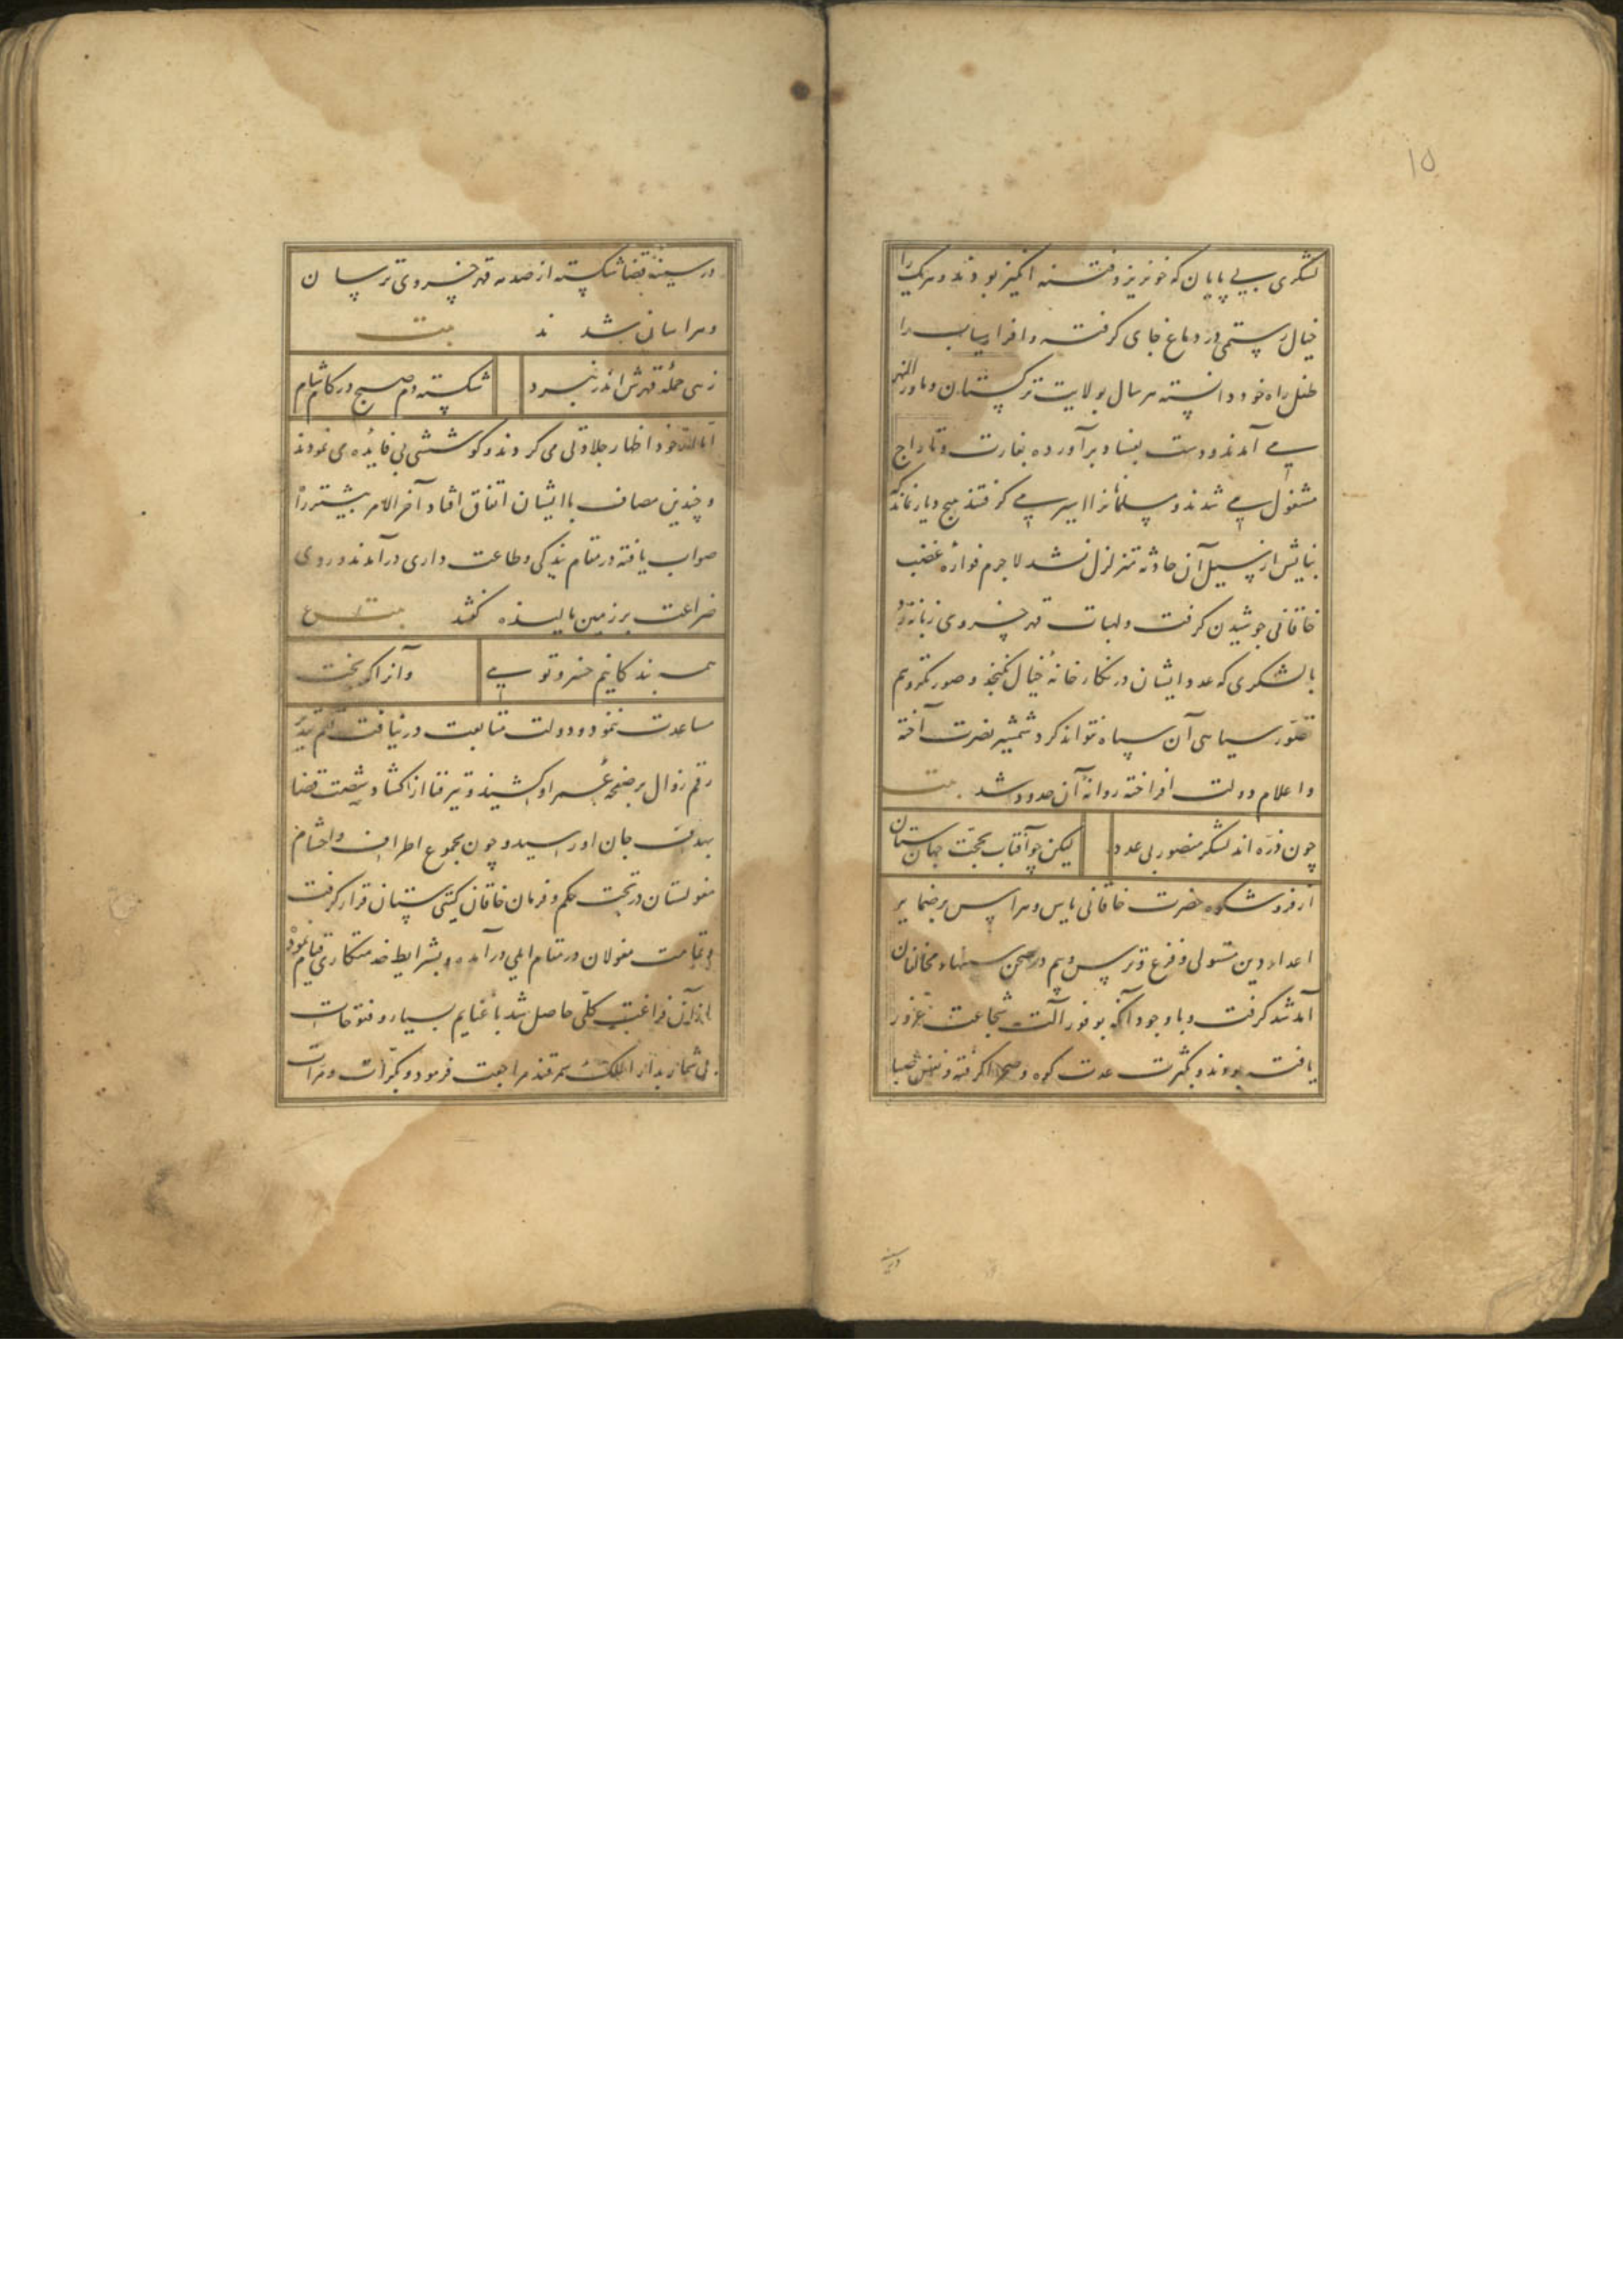 ۱۵
لشکری بی پایان که خونریز و فتنه انکیز بودند و هریک را
خیال رستمی در دماغ جای کرفته و افراسیاب را
طفل راه خود دانسته هر سال بولایت ترکستان و ماورالنهر
می آمدند و دست بفساد برآورده بغارت و تاراج
مشغول می شدند و مسلمانرا اسیر می کرفتند هیچ دیار نماند که
بنایش از سیل آن حادثه متزلزل نشد لاجرم فواره غضب
خاقانی جوشیدن کرفت و لهبات قهر خسروی زبانه زد
با لشکری که عدد ایشان در نکارخانهٔ خیال نکنجد و صورتکر وهم
تصور سیاهی آن سپاه نتواند کرد شمشیر نصرت آخته
و اعلام دولت افراخته روانهٔ آن حدود شد بیت
چون ذره اند لشکر منصور بی عدد
لیکن چو آفتاب بحجت جهان ستان
از فر و شکوه حضرت خاقانی یاس و هراس بر ضمایر
اعداء دین مستولی و فزع و ترس و بیم در صحن سینهاء مخالفان
آمد شد کرفت و با وجود آنکه بوفور آلت شجاعت غرور
یافت بودند و بکثرت عدت کوه و صحرا کرفته و نفس صبا
در سینه
در سینهٔ قضا شکسته از صدمه قهر خسروی ترسان
و هراسان شد ند بیت
زهی حملهٔ قهرش اندر نبرد
شکسته دم صبح در کام شام
اظهار جلادتی می کردند و کوششی بی فایده می نمودند
و چندین مصاف با ایشان اتفاق افتاد آخر الامر بیشتر را
صواب یافته در مقام بندکی و طاعت داری درآمدند و روی
ضراعت بر زمین مالیده کفتند بیت
همه بندکانیم خسرو تویی
و آنرا که بخت
مساعدت ننمود و دولت متابعت در نیافت قلم تقدیر
رقم زوال بر صفحهٔ عمر او کشید و تیر فنا از کشاد شصت قضا
بهدف جان او رسید و چون مجموع اطراف و احشام
مغولستان در تحت حکم و فرمان خاقان کیتی ستان قرار کرفت
و تمامت مغولان در مقام ایلی درآمده و بشرایط خدمتکاری قیام نمود
از آن فراغت کلی حاصل شد با غنایم بسیار و فتوحات
بی شمار بدار الملک سمرقند مراجعت فرمود و بکرات و مرات